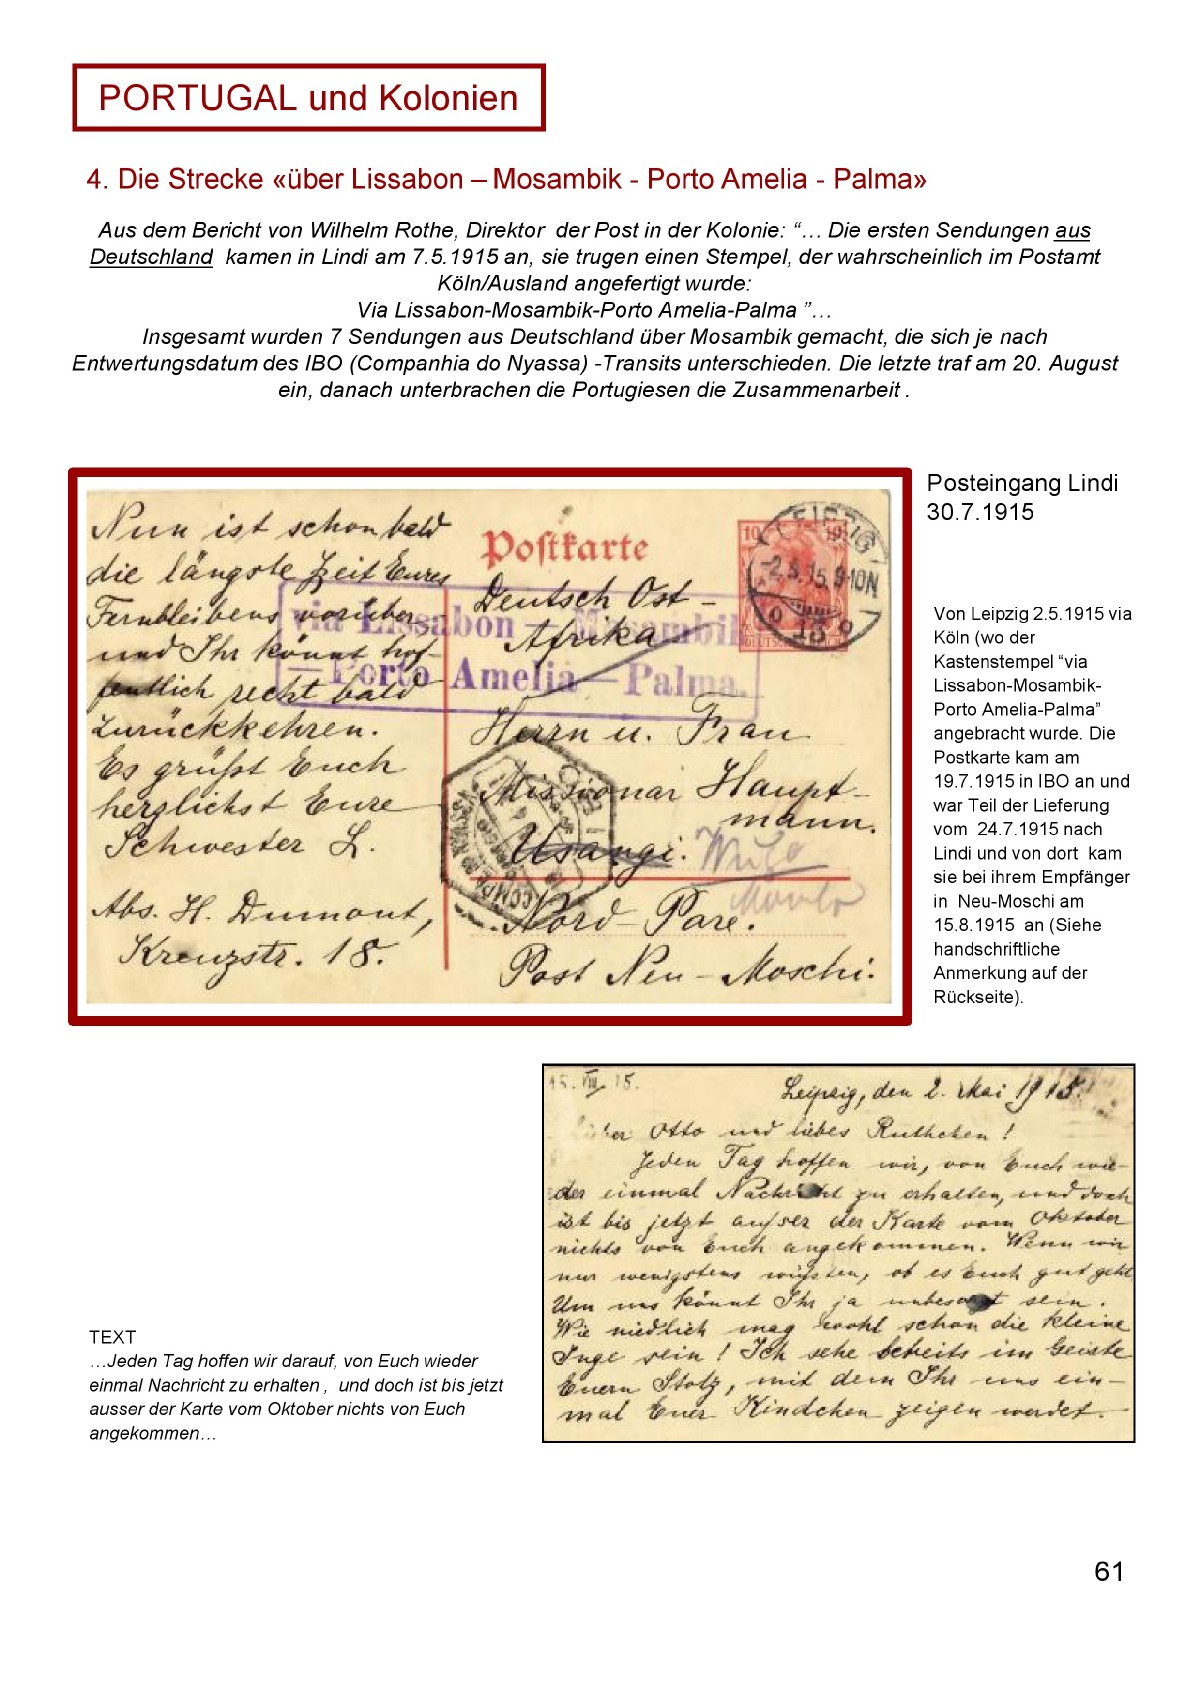 PORTUGAL und Kolonien
4. Die Strecke «über Lissabon – Mosambik - Porto Amelia - Palma»
Aus dem Bericht von Wilhelm Rothe, Direktor der Post in der Kolonie: “… Die ersten Sendungen aus
Deutschland kamen in Lindi am 7.5.1915 an, sie trugen einen Stempel, der wahrscheinlich im Postamt
Köln/Ausland angefertigt wurde:
Via Lissabon-Mosambik-Porto Amelia-Palma ”…
Insgesamt wurden 7 Sendungen aus Deutschland über Mosambik gemacht, die sich je nach
Entwertungsdatum des IBO (Companhia do Nyassa) -Transits unterschieden. Die letzte traf am 20. August
ein, danach unterbrachen die Portugiesen die Zusammenarbeit .
Nun ist schon bald
die längste Zeit Eures
Fernbleibens vorüber
und Ihr könnt hof-
fentlich recht bald
zurückkehren.
Es grüßt Euch
herzlichst Eure
Schwester L.
Abs. H. Dumont,
Kreuzstr. 18.
Postkarte
LEIPZIG
-2.5.15.9-10N
13
via Lissabon – Mosambik
– Porto Amelia – Palma.
Deutsch Ost-
Afrika
Herrn u. Frau
Missionar Haupt-
mann.
Usangi.
Nord-Pare.
Post Neu-Moschi.
Posteingang Lindi
30.7.1915
Von Leipzig 2.5.1915 via
Köln (wo der
Kastenstempel “via
Lissabon-Mosambik-
Porto Amelia-Palma”
angebracht wurde. Die
Postkarte kam am
19.7.1915 in IBO an und
war Teil der Lieferung
vom 24.7.1915 nach
Lindi und von dort kam
sie bei ihrem Empfänger
in Neu-Moschi am
15.8.1915 an (Siehe
handschriftliche
Anmerkung auf der
Rückseite).
15. VIII 15.
Leipzig, den 2. Mai 1915.
Otto und liebes Ruthchen!
Jeden Tag hoffen wir, von Euch wie-
der einmal Nachricht zu erhalten, und doch
ist bis jetzt außer der Karte vom Oktober
nichts von Euch angekommen. Wenn wir
nur wenigstens wüßten, ob es Euch gut geht
Um uns könnt Ihr ja unbesorgt sein.
Wie niedlich mag wohl schon die kleine
Inge sein! Ich sehe bereits im Geiste
Euern Stolz, mit dem Ihr uns ein-
mal Euer Kindchen zeigen werdet.
TEXT
…Jeden Tag hoffen wir darauf, von Euch wieder
einmal Nachricht zu erhalten , und doch ist bis jetzt
ausser der Karte vom Oktober nichts von Euch
angekommen…
61